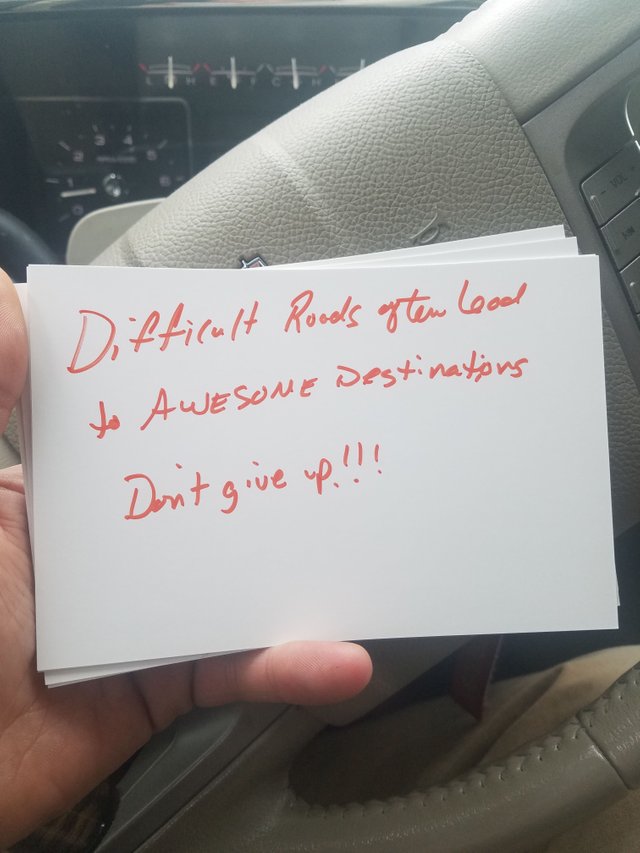 Difficult Roads often lead
to AWESOME Destinations
Don't give up!!!
3 4
2 5
1 6
0
- VOL +